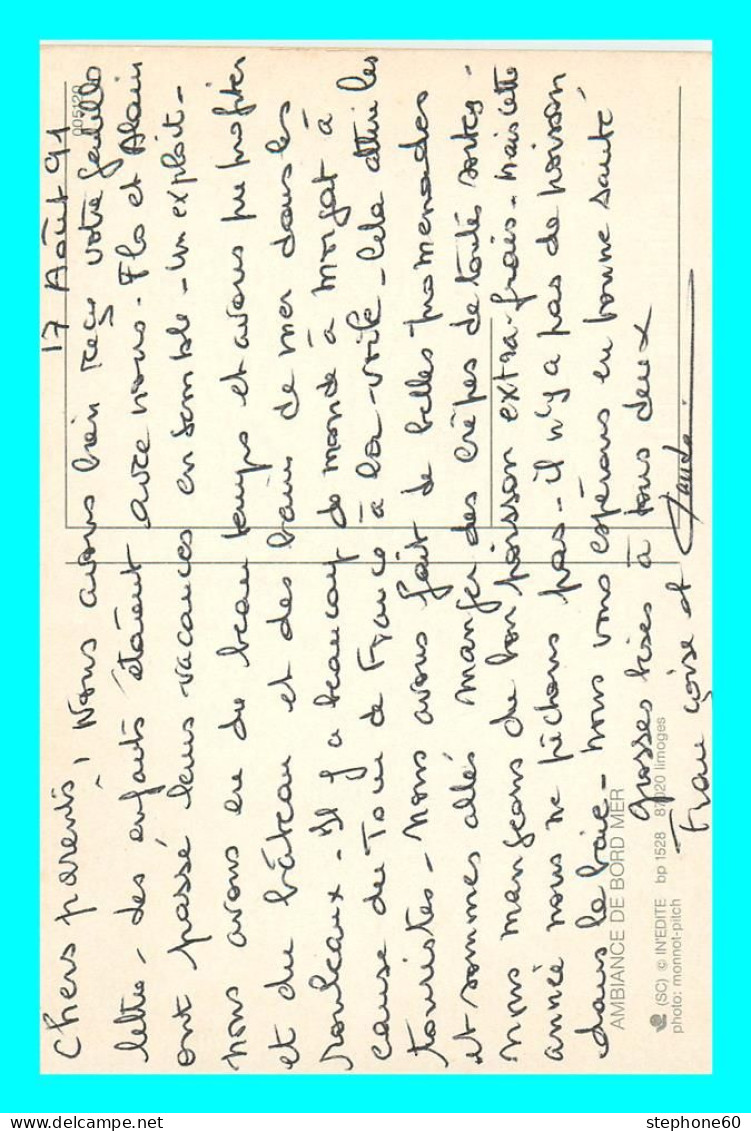 17 Août 91
Chers parents, Nous avons bien reçu votre gentille
lettre - des enfants étaient avec nous - Flo et Alain
ont passé leurs vacances ensemble - un exploit -
nous avons eu du beau temps et avons pu profiter
et du bâteau et des bains de mer dans les
rouleaux - Il y a beaucoup de monde à Morgat à
cause du Tour de France à la voile - Cela attire les
touristes - nous avons fait de belles promenades
et sommes allés manger des crêpes de toutes sortes -
nous mangeons du bon poisson extra-frais - mais cette
année nous ne pêchons pas - il n'y a pas de poisson
dans la baie - nous vous espérons en bonne santé
grosses bises à tous deux
Françoise et
005120
AMBIANCE DE BORD MER
(SC) © IN'EDITE bp 1528 87020 limoges
photo: monnot-pitch
stephone60